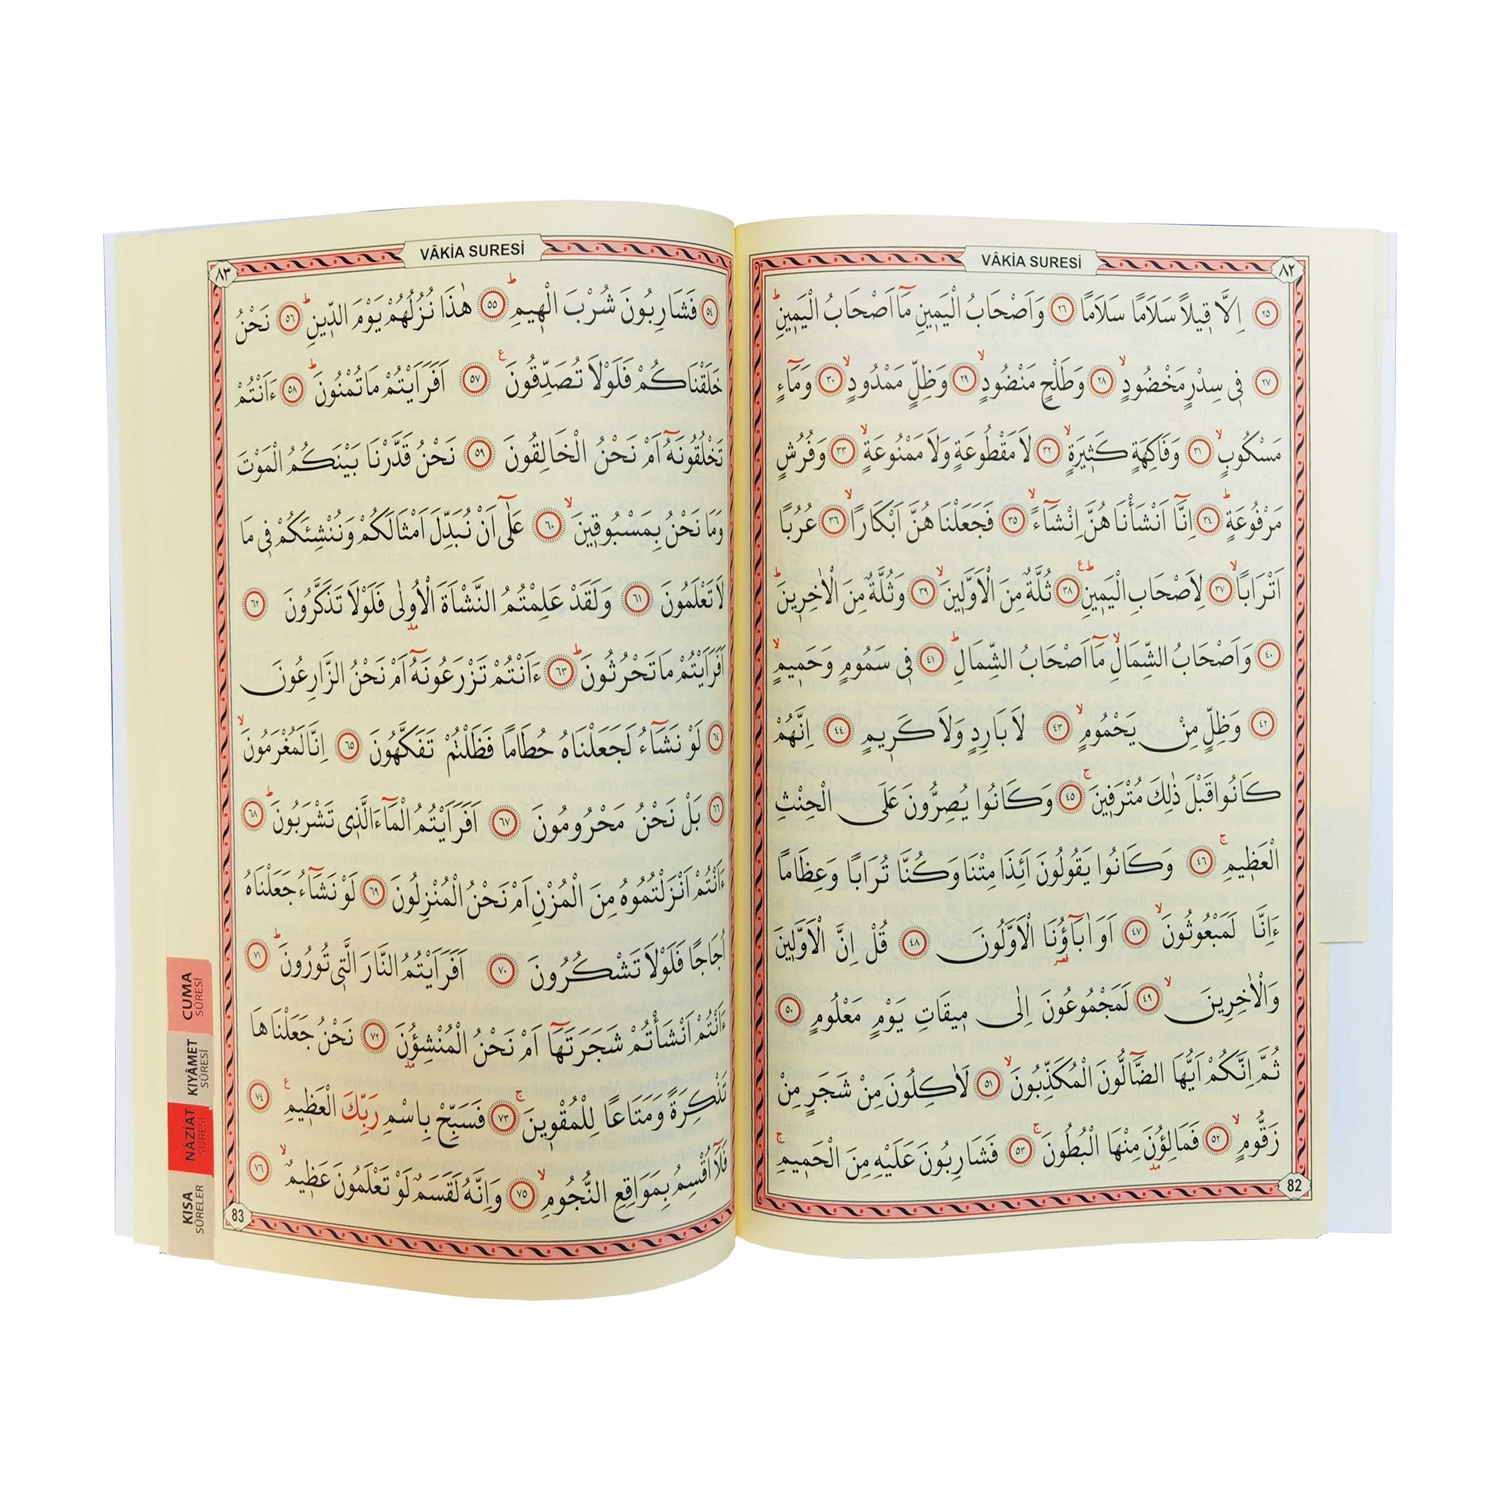 VÂKİA SURESİ
٨٢
٢٥ اِلَّا ق۪يلًا سَلَامًا سَلَامًا ٢٦ وَاَصْحَابُ الْيَم۪ينِ مَٓا اَصْحَابُ الْيَم۪ينِۜ
٢٧ ف۪ي سِدْرٍ مَخْضُودٍۙ ٢٨ وَطَلْحٍ مَنْضُودٍۙ ٢٩ وَظِلٍّ مَمْدُودٍۙ ٣٠ وَمَٓاءٍ
مَسْكُوبٍۙ ٣١ وَفَاكِهَةٍ كَث۪يرَةٍۙ ٣٢ لَا مَقْطُوعَةٍ وَلَا مَمْنُوعَةٍۙ ٣٣ وَفُرُشٍ
مَرْفُوعَةٍۜ ٣٤ اِنَّٓا اَنْشَأْنَا هُنَّ اِنْشَٓاءًۙ ٣٥ فَجَعَلْنَا هُنَّ اَبْكَارًاۙ ٣٦ عُرُبًا
اَتْرَابًاۙ ٣٧ لِاَصْحَابِ الْيَم۪ينِۜ ٣٨ ثُلَّةٌ مِنَ الْاَوَّل۪ينَۙ ٣٩ وَثُلَّةٌ مِنَ الْاٰخِر۪ينَۜ
٤٠ وَاَصْحَابُ الشِّمَالِۙ مَٓا اَصْحَابُ الشِّمَالِۜ ٤١ ف۪ي سَمُومٍ وَحَم۪يمٍۙ
٤٢ وَظِلٍّ مِنْ يَحْمُومٍۙ ٤٣ لَا بَارِدٍ وَلَا كَر۪يمٍ ٤٤ اِنَّهُمْ
كَانُوا قَبْلَ ذٰلِكَ مُتْرَف۪ينَۚ ٤٥ وَكَانُوا يُصِرُّونَ عَلَى الْحِنْثِ
الْعَظ۪يمِۚ ٤٦ وَكَانُوا يَقُولُونَ اَئِذَا مِتْنَا وَكُنَّا تُرَابًا وَعِظَامًا
ءَاِنَّا لَمَبْعُوثُونَۙ ٤٧ اَوَ اٰبَٓاؤُ۬نَا الْاَوَّلُونَ ٤٨ قُلْ اِنَّ الْاَوَّل۪ينَ
وَالْاٰخِر۪ينَۙ ٤٩ لَمَجْمُوعُونَ اِلٰى م۪يقَاتِ يَوْمٍ مَعْلُومٍ ٥٠
ثُمَّ اِنَّكُمْ اَيُّهَا الضَّٓالُّونَ الْمُكَذِّبُونَۙ ٥١ لَاٰكِلُونَ مِنْ شَجَرٍ مِنْ
زَقُّومٍۙ ٥٢ فَمَالِؤُ۫نَ مِنْهَا الْبُطُونَۚ ٥٣ فَشَارِبُونَ عَلَيْهِ مِنَ الْحَم۪يمِۚ
82
VÂKİA SURESİ
٨٣
٥٤ فَشَارِبُونَ شُرْبَ الْه۪يمِۜ ٥٥ هٰذَا نُزُلُهُمْ يَوْمَ الدّ۪ينِۜ ٥٦ نَحْنُ
خَلَقْنَاكُمْ فَلَوْلَا تُصَدِّقُونَ ٥٧ اَفَرَاَيْتُمْ مَا تُمْنُونَۜ ٥٨ ءَاَنْتُمْ
تَخْلُقُونَهُٓ اَمْ نَحْنُ الْخَالِقُونَ ٥٩ نَحْنُ قَدَّرْنَا بَيْنَكُمُ الْمَوْتَ
وَمَا نَحْنُ بِمَسْبُوق۪ينَۙ ٦٠ عَلٰٓى اَنْ نُبَدِّلَ اَمْثَالَكُمْ وَنُنْشِئَكُمْ ف۪ي مَا
لَا تَعْلَمُونَ ٦١ وَلَقَدْ عَلِمْتُمُ النَّشْاَةَ الْاُو۫لٰى فَلَوْلَا تَذَكَّرُونَ ٦٢
اَفَرَاَيْتُمْ مَا تَحْرُثُونَۜ ٦٣ ءَاَنْتُمْ تَزْرَعُونَهُٓ اَمْ نَحْنُ الزَّارِعُونَ
٦٤ لَوْ نَشَٓاءُ لَجَعَلْنَاهُ حُطَامًا فَظَلْتُمْ تَفَكَّهُونَ ٦٥ اِنَّا لَمُغْرَمُونَۙ
٦٦ بَلْ نَحْنُ مَحْرُومُونَ ٦٧ اَفَرَاَيْتُمُ الْمَٓاءَ الَّذ۪ي تَشْرَبُونَۜ ٦٨
ءَاَنْتُمْ اَنْزَلْتُمُوهُ مِنَ الْمُزْنِ اَمْ نَحْنُ الْمُنْزِلُونَ ٦٩ لَوْ نَشَٓاءُ جَعَلْنَاهُ
اُجَاجًا فَلَوْلَا تَشْكُرُونَ ٧٠ اَفَرَاَيْتُمُ النَّارَ الَّت۪ي تُورُونَۜ ٧١
ءَاَنْتُمْ اَنْشَأْتُمْ شَجَرَتَهَٓا اَمْ نَحْنُ الْمُنْشِؤُ۫نَ ٧٢ نَحْنُ جَعَلْنَا هَا
تَذْكِرَةً وَمَتَاعًا لِلْمُقْو۪ينَۚ ٧٣ فَسَبِّحْ بِاسْمِ رَبِّكَ الْعَظ۪يمِ ٧٤
فَلَٓا اُقْسِمُ بِمَوَاقِعِ النُّجُومِۙ ٧٥ وَاِنَّهُ لَقَسَمٌ لَوْ تَعْلَمُونَ عَظ۪يمٌۙ ٧٦
83
CUMA
SÛRESİ
KIYÂMET
SÛRESİ
NÂZİAT
SÛRESİ
KISA
SÛRELER